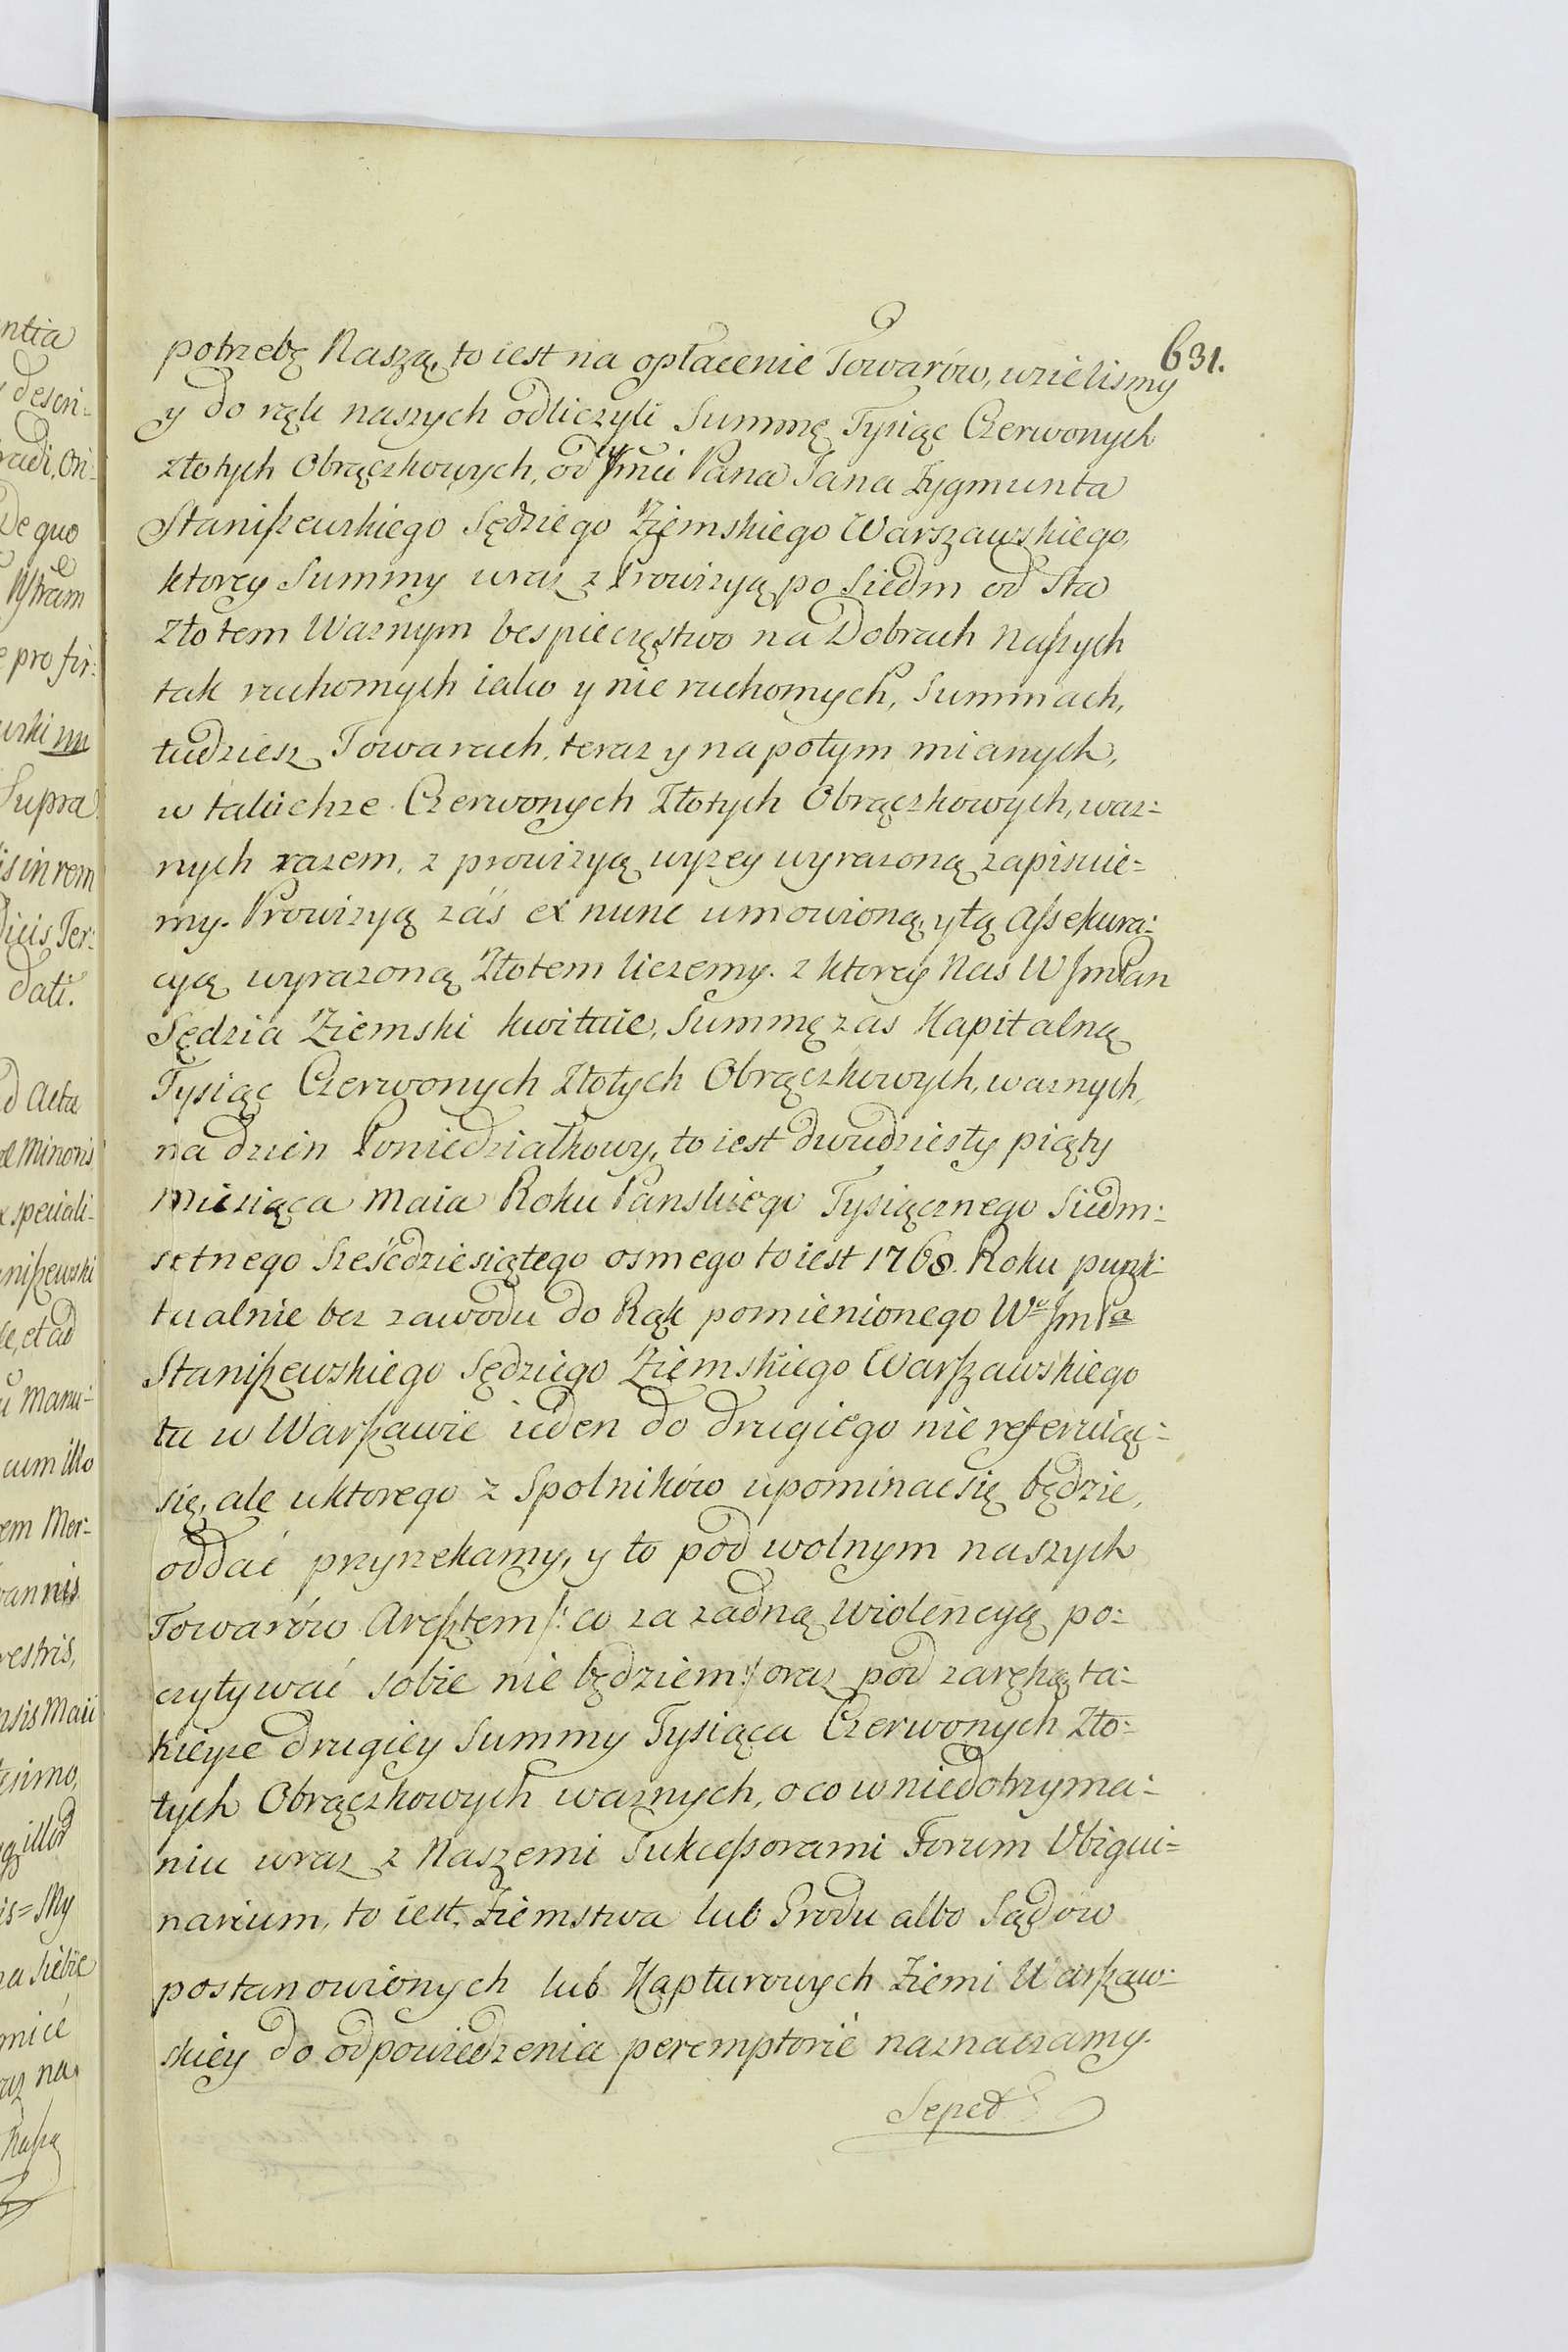 631.
potrzebę Naszą, to iest na opłacenie Towarów, wzielismy
y do rąk naszych odliczyli Summę Tysiąc Czerwonych
złotych Obrączkowych, od Jmci Pana Jana Zygmunta
Staniszewskiego Sędziego Ziemskiego Warszawskiego,
ktorey Summy wraz z Prowizyą po Siedm od Sta
złotem Waznym bespieczęstwo na Dobrach naszych
tak ruchomych iako y nie ruchomych, Summach,
tudziesz Towarach, teraz y napotym mianych,
w takichze Czerwonych Złotych Obrączkowych, waz:
nych razem, z prowizyą wyzey wyrazoną zapisuie=
my. Prowizyą zaś ex nunc umowioną, y tą Assekura:
cyą wyrazoną Złotem liczemy. z ktorey Nas W JmPan
Sędzia Ziemski kwituie, Summę zas Kapitalną
Tysiąc Czerwonych Złotych Obrączkowych, waznych,
na dzień Poniedziałkowy, to iest dwudziesty piąty
Miesiąca Maia Roku Panskiego Tysiącznego Siedm:
setnego Sześćdziesiątego osmego to iest 1768. Roku punk:
tualnie bez zawodu do Rąk pomienionego Wo JmPa
Staniszewskiego Sędziego Ziemskiego Warszawskiego
tu w Warszawie ieden do drugiego nie referuiąc=
się, ale uktorego z Spolników upominac się będzie,
oddać przyrzekamy, y to pod wolnym naszych
Towarów Aresztem /: co za zadną wiolencyą po:
czytywać sobie nie będziem :/ oraz pod zaręką ta:
kieyze drugiey Summy Tysiąca Czerwonych Zło:
tych Obrączkowych waznych, o co w niedotrzyma:
niu wraz z Naszemi Sukcessorami Forum Ubiqui=
narium, to iest, Ziemstwa lub Grodu albo Sądow
postanowionych lub Kapturowych Ziemi Warszaw:
skiey do odpowiedzenia peremptorie naznaczamy.